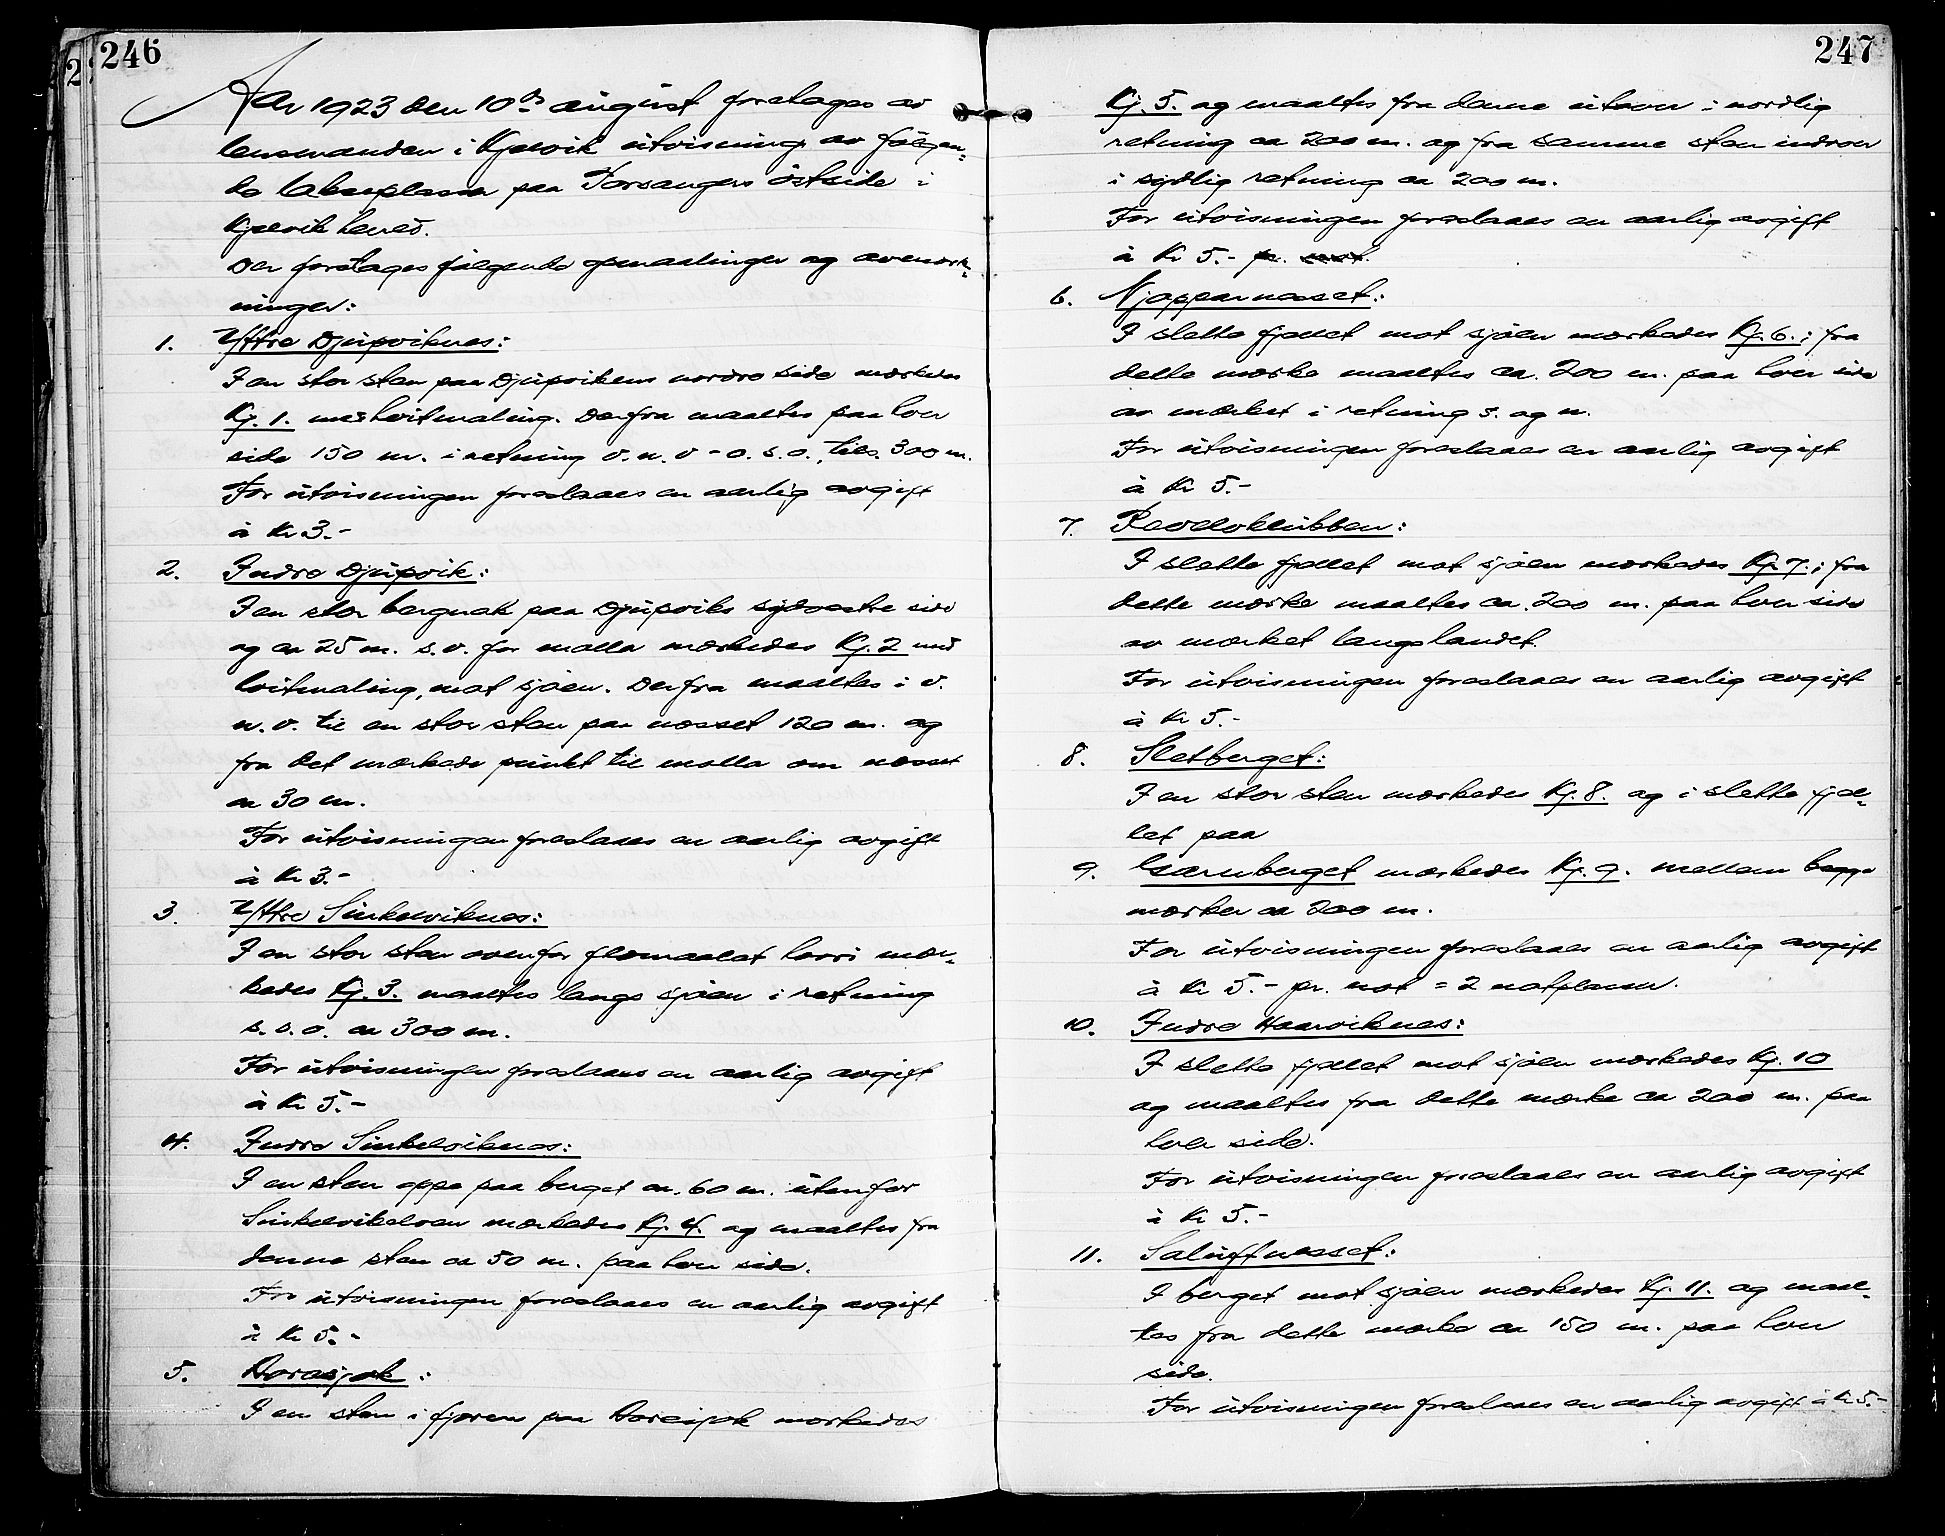 246
Aar 1923 den 10de august foretages av
lensmanden i Kjelvik utvisning av følgen-
de lakseplasser paa Porsangers østside i
Kjelvik herred.
Der foretages følgende opmaalinger og avmerk-
ninger:
1. Yttre Djupviknes:
I en stor sten paa Djupvikens nordre side merkedes
Kj. 1. med hvitmaling. Derfra maaltes paa hver
side 150 m. i retning v.n.v - o.s.o., tils. 300 m.
For utvisningen foreslaaes en aarlig avgift
à Kr 3.-
2. Indre Djupvik:
I en stor bergnak paa Djupviks sydvestre side
og ca 25 m. s.v. for molla merkedes Kj. 2 med
hvitmaling, mot sjøen. Derfra maaltes i v.
n.v. til en stor sten paa nesset 120 m. og
fra det merkede punkt til molla om nesset
ca 30 m.
For utvisningen foreslaaes en aarlig avgift
à Kr 3.-
3. Yttre Sinkelviknes:
I en stor sten ovenfor flomaalet hvori mer-
kedes Kj. 3. maaltes langs sjøen i retning
s.s.o. ca 300 m.
For utvisningen foreslaaes en aarlig avgift
à Kr 5.-
4. Indre Sinkelviknes:
I en sten oppe paa berget ca. 60 m. utenfor
Sinkelvikelven merkedes Kj. 4. og maaltes fra
denne sten ca 50 m. paa hver side.
For utvisningen foreslaaes en aarlig avgift
à Kr 5.-
5. :
I en sten i fjæren paa merkedes
247
Kj. 5. og maaltes fra denne utover i nordlig
retning ca 200 m. og fra samme sten indover
i sydlig retning ca 200 m.
For utvisningen foreslaaes en aarlig avgift
à Kr 5.- pr. not.
6. Njoppernesset:
I slette fjellet mot sjøen merkedes Kj. 6.; fra
dette merke maaltes ca. 200 m. paa hver side
av merket i retning s. og n.
For utvisningen foreslaaes en aarlig avgift
à Kr 5.-
7. :
I slette fjellet mot sjøen merkedes Kj. 7.; fra
dette merke maaltes ca. 200 m. paa hver side
av merket langs landet.
For utvisningen foreslaaes en aarlig avgift
à Kr 5.-
8. Sletberget:
I en stor sten merkedes Kj. 8. og i slette fjel-
let paa
9. merkedes Kj. 9. mellem begge
merker ca 200 m.
For utvisningen foreslaaes en aarlig avgift
à Kr 5.- pr. not = 2 notplasser.
10. Indre Haarviknes:
I slette fjellet mot sjøen merkedes Kj. 10
og maaltes fra dette merke ca 200 m. paa
hver side.
For utvisningen foreslaaes en aarlig avgift
à Kr 5.-
11. Saluftnesset:
I berget mot sjøen merkedes Kj. 11. og maal-
tes fra dette merke ca 150 m. paa hver
side.
For utvisningen foreslaaes en aarlig avgift à Kr 5.-